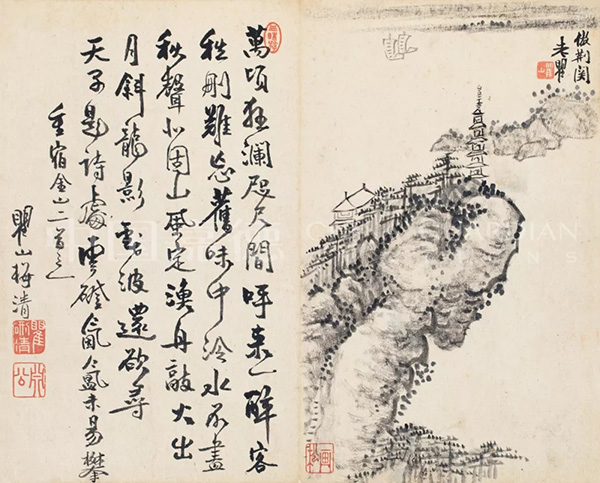 倣荊關
老瞿
萬頃狂瀾咫尺間呼來一醉客
愁刪難忘舊味中泠水不盡
秋聲北固山風定漁舟敲火出
月斜龍影動波還欲尋
天子題詩處雲磴氤氳未易攀
重宿金山二首之一
瞿山梅清